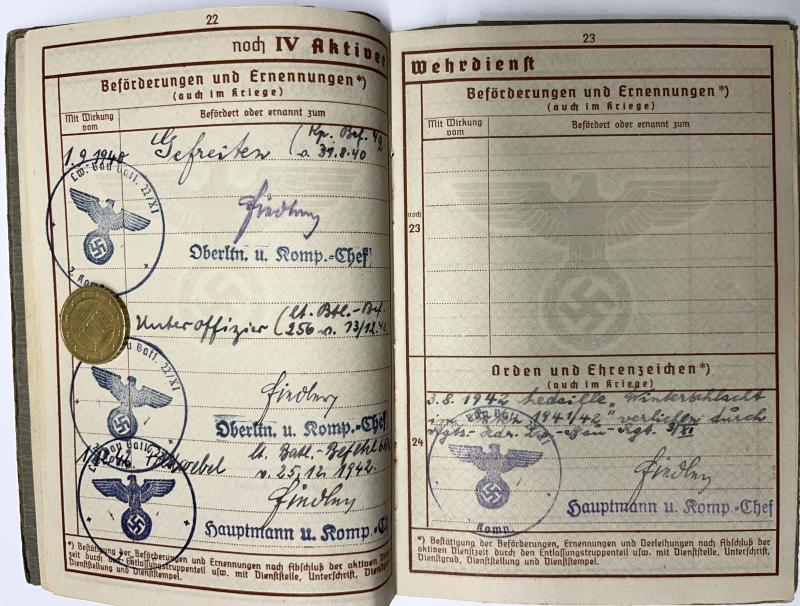 22
noch IV Aktiver
Beförderungen und Ernennungen*)
(auch im Kriege)
Mit Wirkung vom
Befördert oder ernannt zum
1.9.1940 Gefreiten (Kp. Bef. 42
a 31.8.40
Lw. Bau Batl. 22/XI
Fiedler
Oberltn. u. Komp.-Chef
2. Komp.
Unteroffizier (lt. Btl.-Bef.
256 v. 13/12.40
Bau Batl. 22/XI
Fiedler
Oberltn. u. Komp.-Chef
lt. Batl.-Befehl
v. 25.12.1942.
Fiedler
Hauptmann u. Komp.-C
*) Bestätigung der Beförderungen und Ernennungen nach Abschluß der aktiven
zeit durch den Entlassungstruppenteil usw. mit Dienststelle, Unterschrift,
Dienststellung und Dienststempel.
23
Wehrdienst
Beförderungen und Ernennungen*)
(auch im Kriege)
Mit Wirkung vom
Befördert oder ernannt zum
noch
23
Orden und Ehrenzeichen*)
(auch im Kriege)
3.8.1942 Medaille „Winterschlacht
1941/42" verliehen durch
24
Fiedler
Hauptmann u. Komp.-Chef
Komp.
*) Bestätigung der Beförderungen, Ernennungen und Verleihungen nach Abschluß der
aktiven Dienstzeit durch den Entlassungstruppenteil usw. mit Dienststelle, Unterschrift,
Dienstgrad, Dienststellung und Dienststempel.